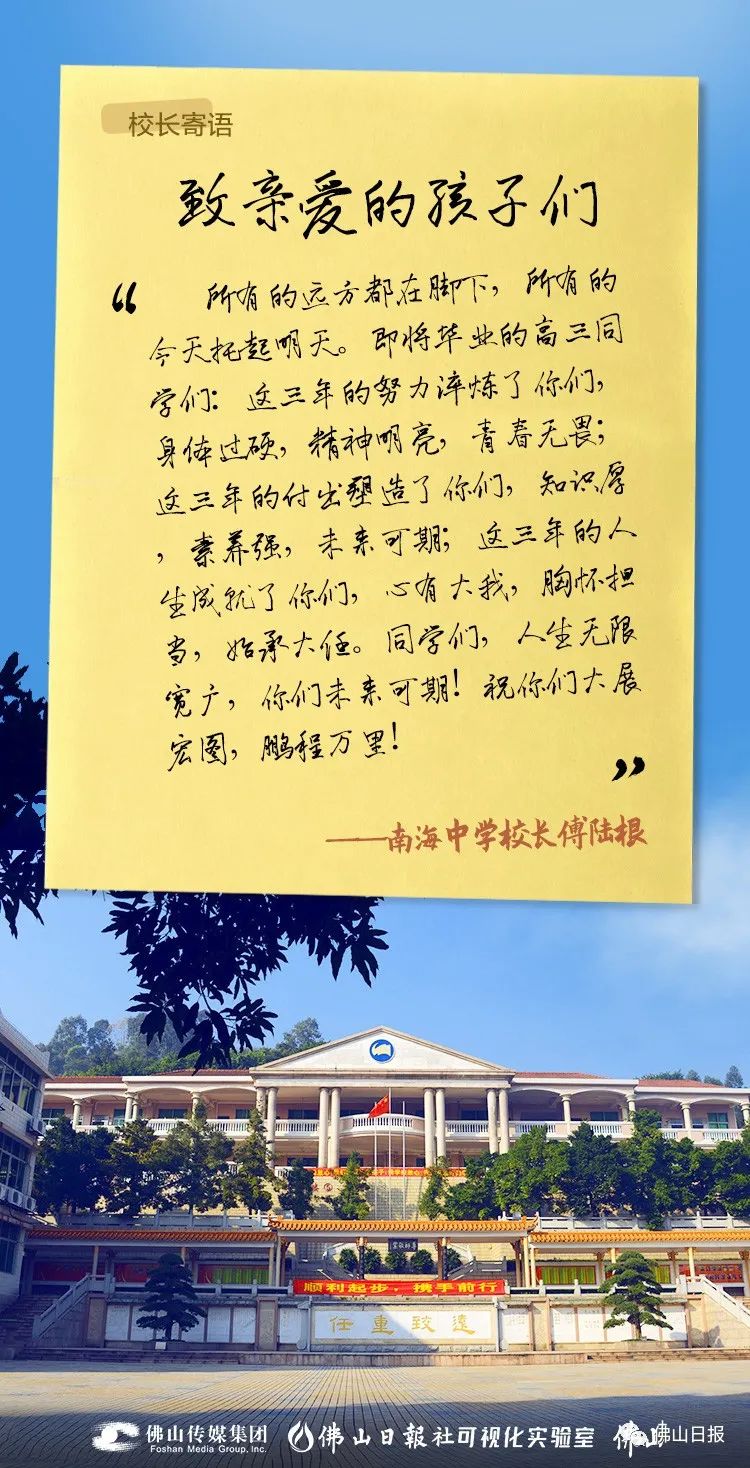 校长寄语
致亲爱的孩子们
“ 所有的远方都在脚下，所有的
今天托起明天。即将毕业的高三同
学们：这三年的努力淬炼了你们，
身体过硬，精神明亮，青春无畏；
这三年的付出塑造了你们，知识厚
，素养强，未来可期；这三年的人
生成就了你们，心有大我，胸怀担
当，始承大任。同学们，人生无限
宽广，你们未来可期！祝你们大展
宏图，鹏程万里！
”
——南海中学校长傅陆根
顺利起步，携手前行
任重致远
佛山传媒集团
Foshan Media Group, Inc.
佛山日报社可视化实验室
佛山日报